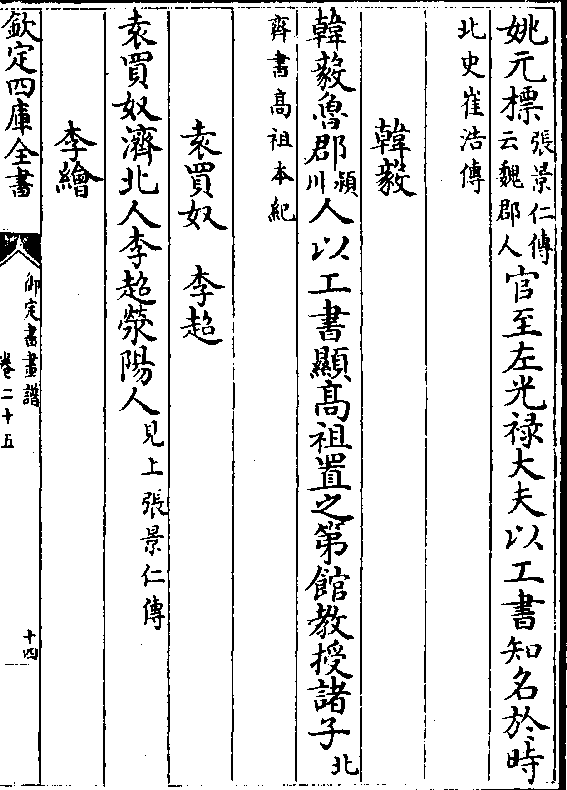 姚元標張景仁傳云魏郡人官至左光禄大夫以工書知名於時
北史崔浩傳
韓毅
韓毅魯郡潁川人以工書顯髙祖置之第館教授諸子北
齊書髙祖本紀
袁買奴 李超
袁買奴濟北人李超滎陽人見上張景仁傳
李繪
欽定四庫全書 御定書畫譜 卷二十五 十四